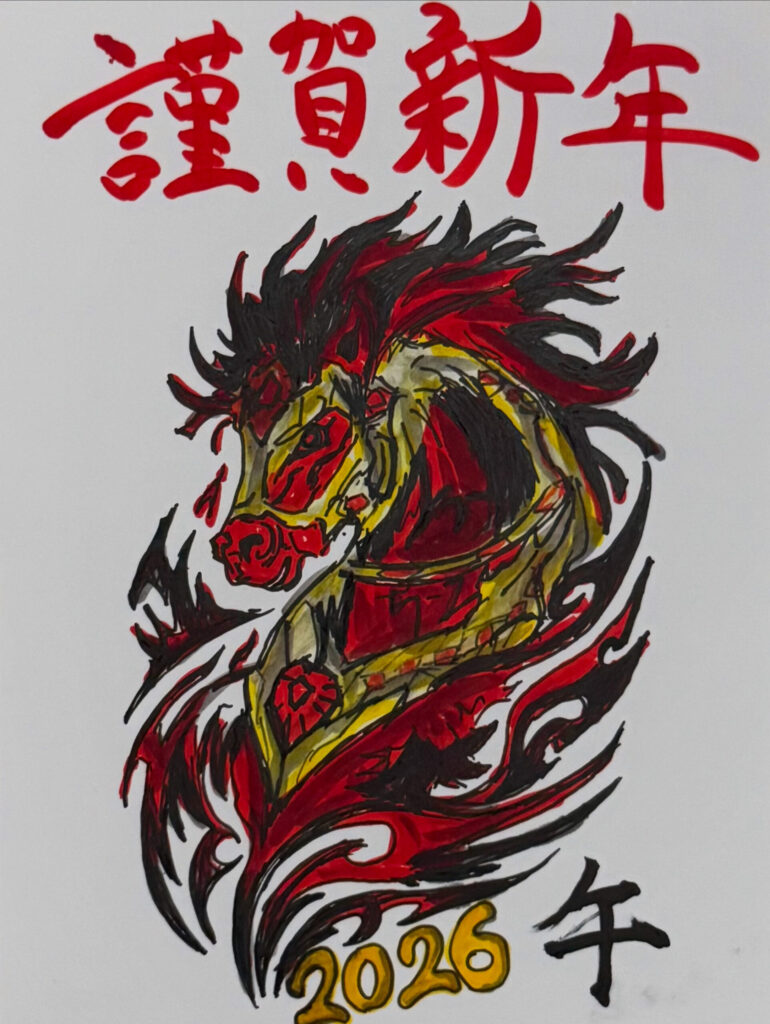 謹賀新年
2026
午